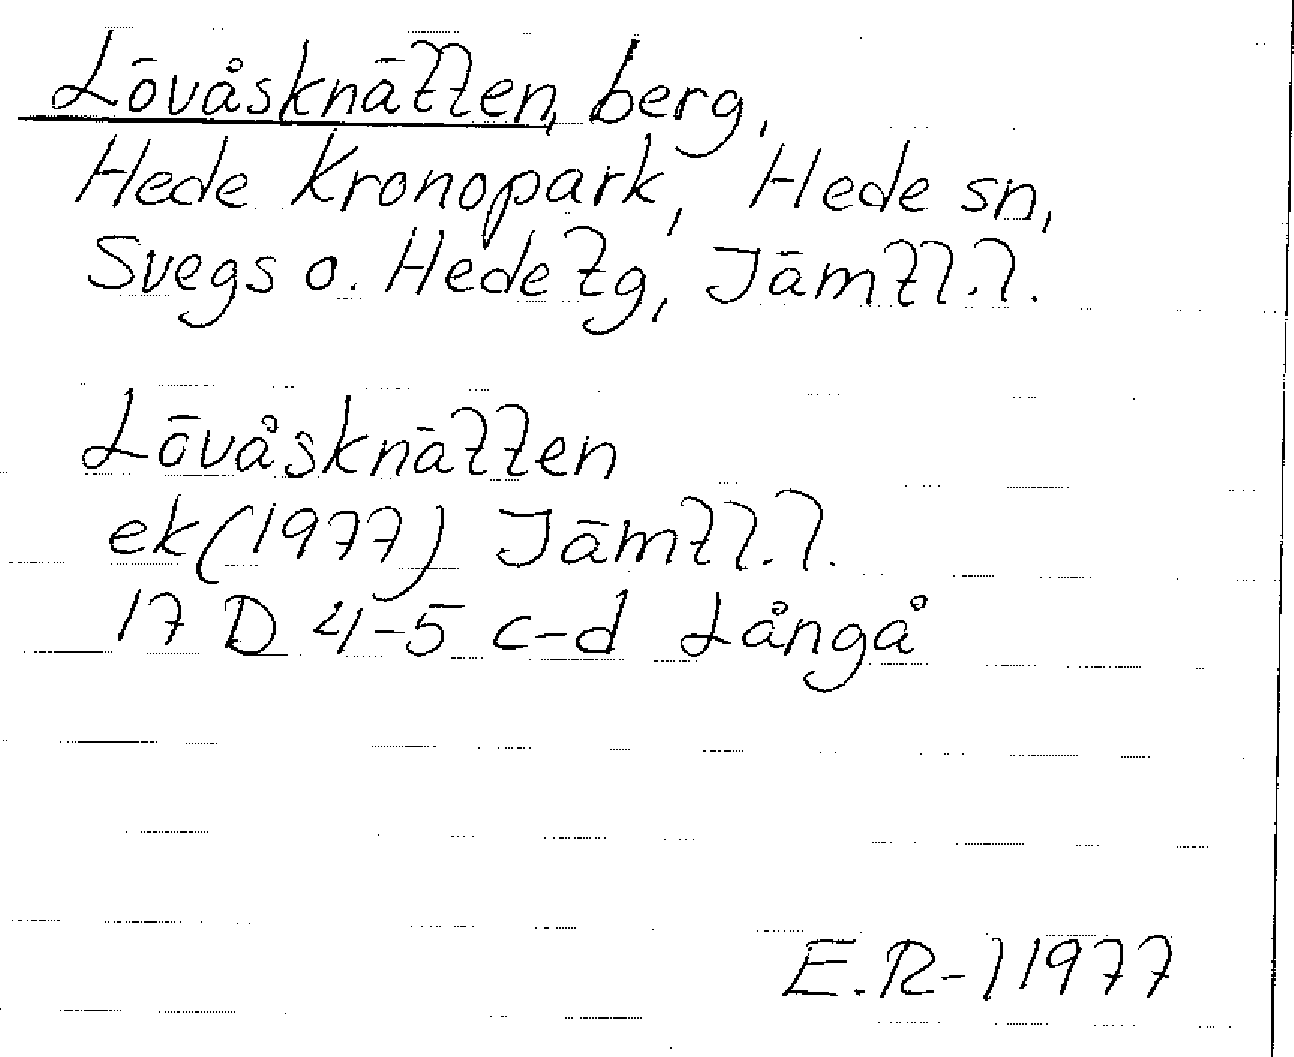 Lövåsknätten, berg,
Hede kronopark, Hede sn,
Svegs o. Hede tg, Jämtl.l.
Lövåsknätten
ek (1977) Jämtl.l.
17 D 4-5 c-d Långå
E.R-l 1977